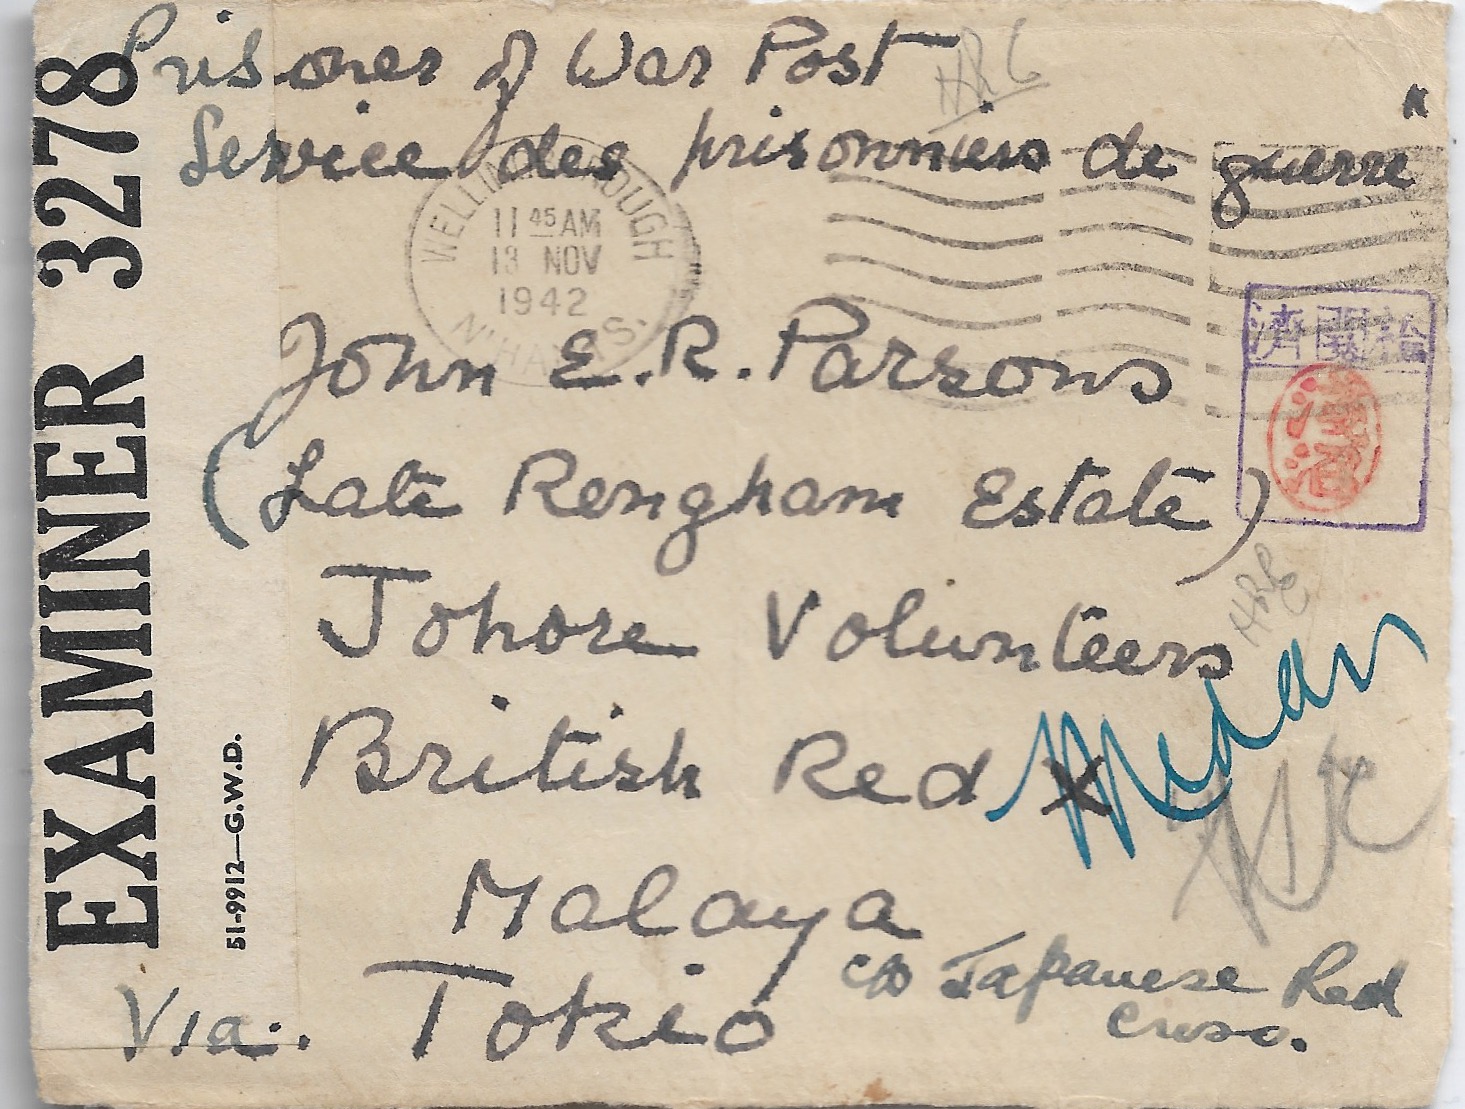 Prisoner of War Post
Service des prisonniers de guerre
WELLINGBOROUGH
11 45 AM
13 NOV
1942
N'HANTS.
John E. R. Parsons
(Late Rengham Estate)
Johore Volunteers
British Red X
Medan
Malaya
c/o Japanese Red
Cross.
Via. Tokio
EXAMINER 3278
51-9912—G.W.D.
濟閲